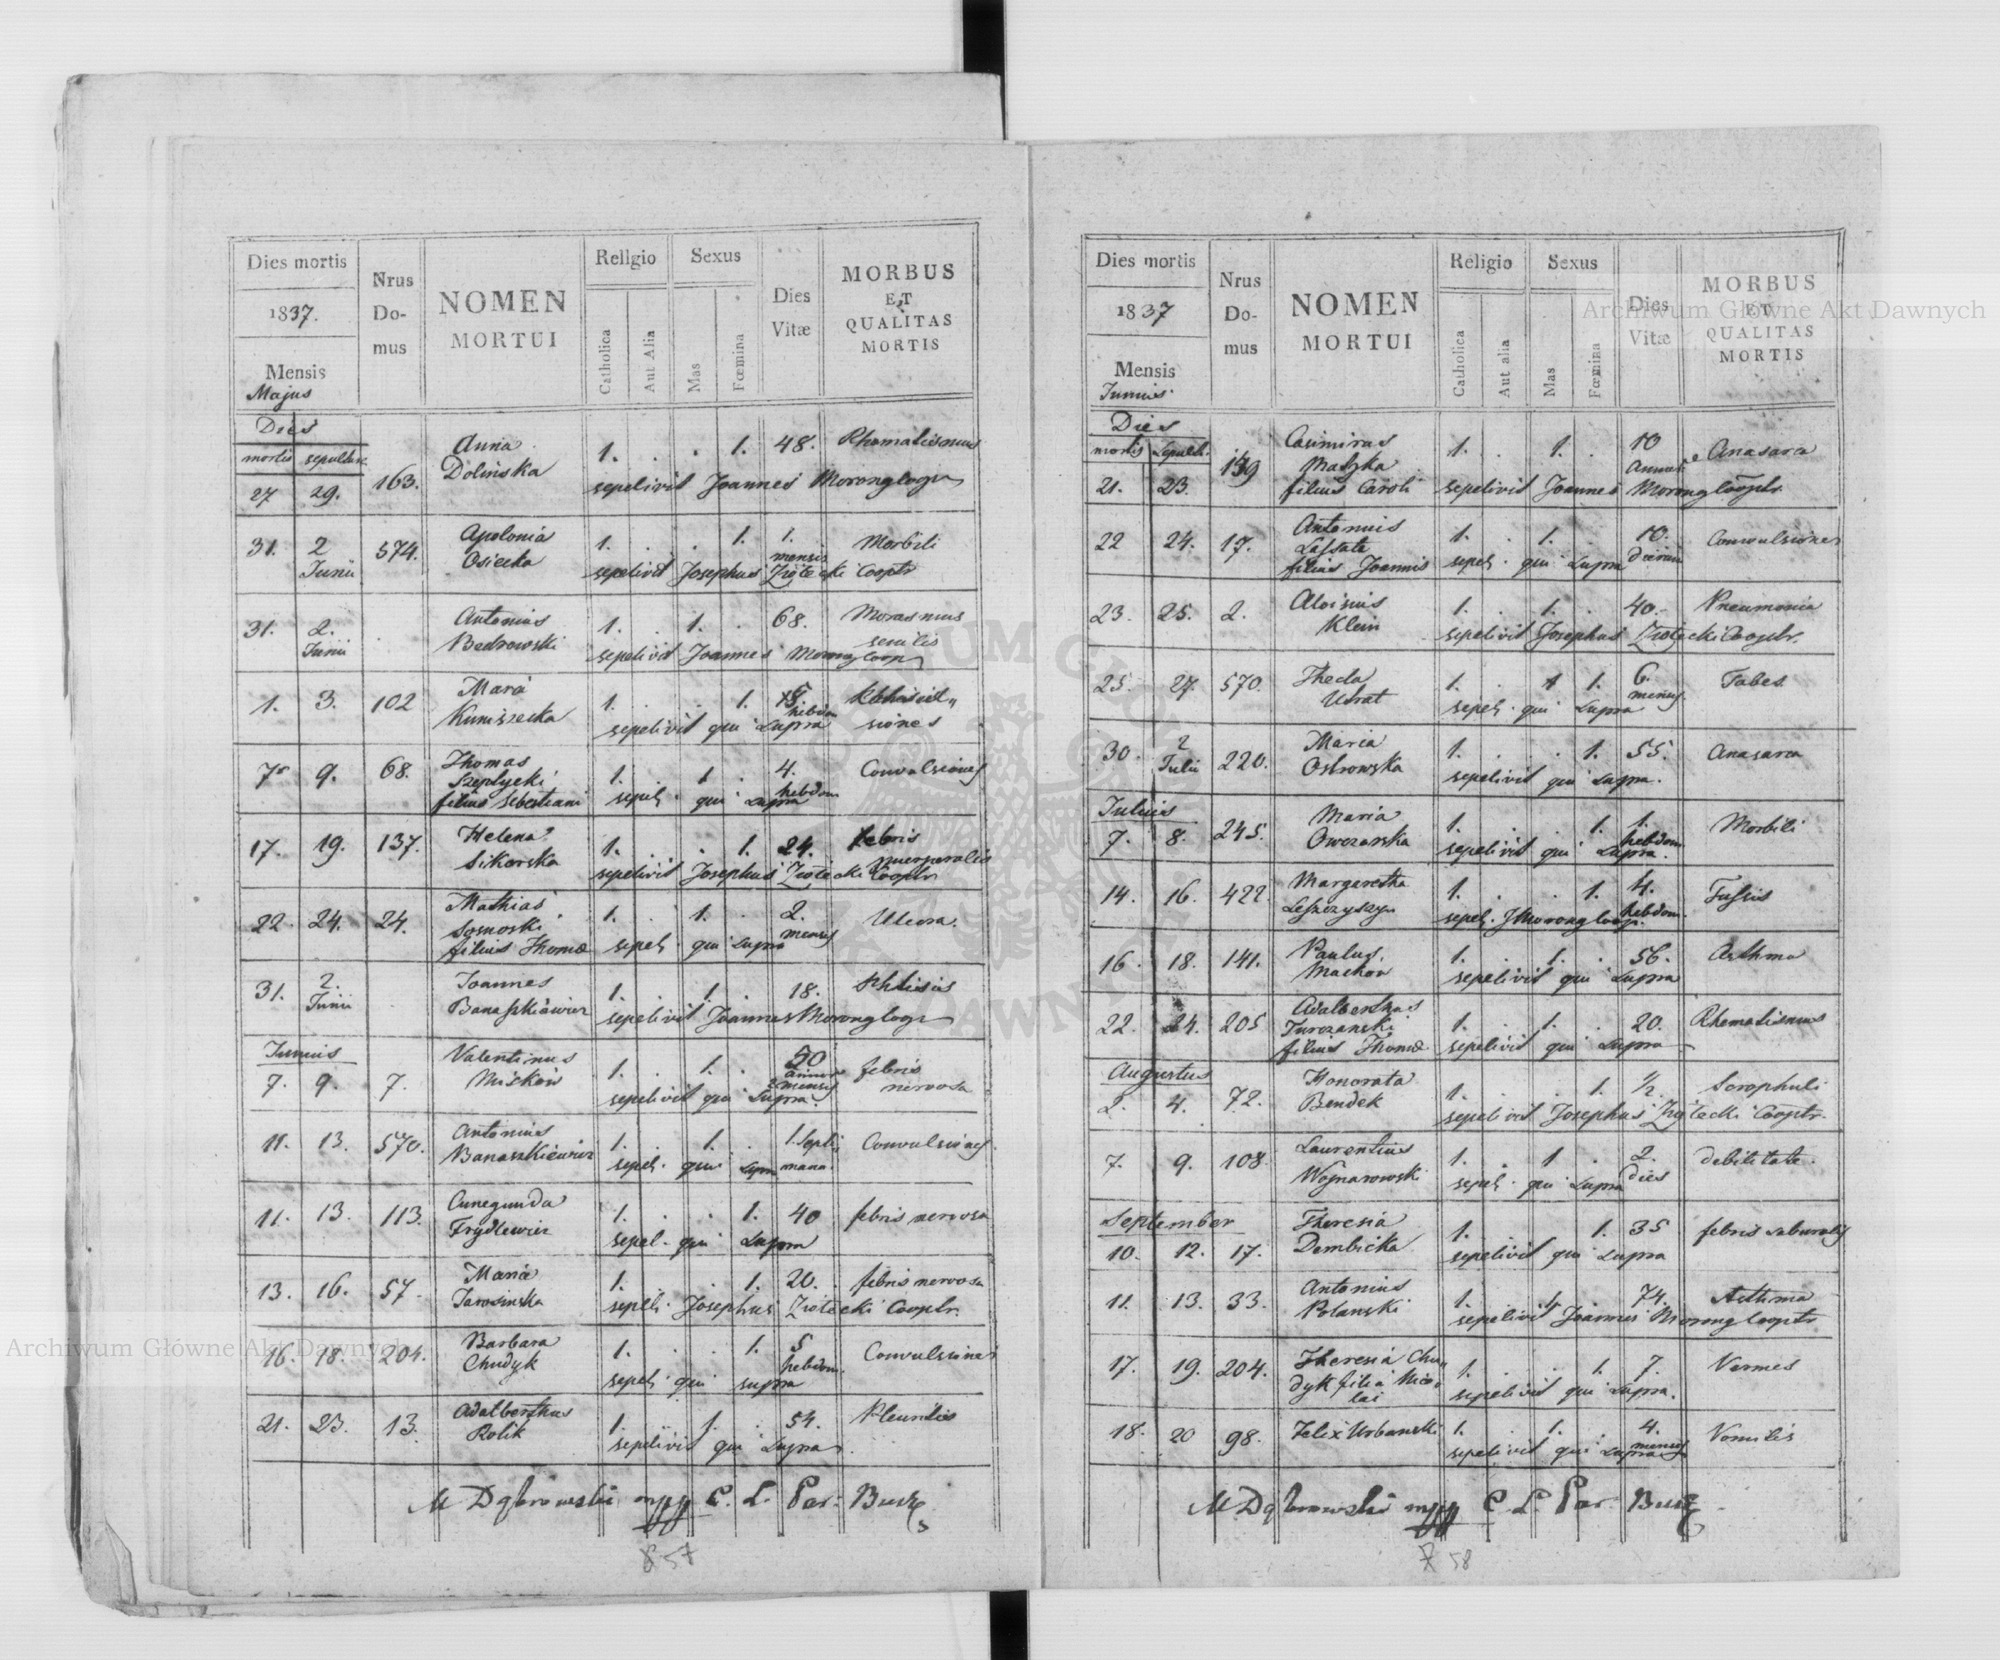 Dies mortis
1837.
Mensis
Majus
Nrus
Do-
mus
NOMEN
MORTUI
Religio
Catholica
Aut Alia
Sexus
Mas
Fœmina
Dies
Vitæ
MORBUS
ET
QUALITAS
MORTIS
Dies
mortis sepulturæ
27 29. 163. Anna 1. . . 1. 48. Rhomatismus
Dolińska
sepelivit Joannes Morong Coopr
31. 2 574. Apolonia 1. . . 1. 1. Morbili
Junii Osiecka mensis
sepelivit Josephus Ziołecki Cooptr
31. 2. . Antonius 1. . 1. . 68. Morasmus
Junii Bedrowski senilis
sepelivit Joannes Morong Coopr
1. 3. 102 Maria 1. . . 1. hebdom
Kuniszecka siones
sepelivit qui supra
7. 9. 68. Thomas 1. . 1 . 4. Convulsiones
Szeptycki hebdom
filius Sebastiani sepel. qui supra
17. 19. 137. Helena 1. . . 1. 24. febris
Sikorska puerperalis
sepelivit Josephus Ziołecki Cooptr
22. 24. 24. Mathias 1. . 1. . 2. Ulcera.
Sosnoski mensis
filius Thomæ sepel. qui supra
31. 2. . Joannes 1. . 1. . 18. Phtisis
Junii Banaszkiewicz
sepelivit Joannes Morong Coopr
Junius
7. 9. 7. Valentinus 1. . 1. . 50 febris
Miśków annor nervosa
2 mensis
sepelivit qui supra.
11. 13. 570. Antonius 1. . 1. . 1. septi- Convulsiones
Banaszkiewicz mana.
sepel. qui supra
11. 13. 113. Cunegunda 1. . . 1. 40 febris nervosa
Frydlewicz sepel. qui supra
13. 16. 57. Maria 1. . . 1. 20. febris nervosa
Jarosinska sepel. Josephus Ziołecki Cooptr.
16. 18. 204. Barbara 1. . . 1. 5 Convulsiones
Chudyk hebdom.
sepel. qui supra
21. 23. 13. Adalberthus 1. . 1. . 54. Pleuritis
Rolik
sepelivit qui supra
M Dąbrowski mpp C. L. Par. Busk
57
Dies mortis
1837
Mensis
Junius
Nrus
Do-
mus
NOMEN
MORTUI
Religio
Catholica
Aut alia
Sexus
Mas
Fœmina
Dies
Vitæ
MORBUS
ET
QUALITAS
MORTIS
Dies
mortis Sepult.
21. 23. 139 Casimirus 1. . 1. . 10 Anasarca
Matyka
filius Caroli sepelivit Joannes Morong Cooptr
22 24. 17. Antonius 1. . 1. . 10. Convulsiones
Lassata dierum
filius Joannis sepel. qui supra
23. 25. 2. Aloisius 1. . 1. . 40. Pneumonia
Klein sepelivit Josephus Ziołecki Cooptr.
25. 27. 570. Thecla 1. . 1 1. 6. Tabes
Urat mensis
sepel. qui supra
30. 2 220. Maria 1. . . 1. 55. Anasarca
Julii Ostrowska
sepelivit qui supra.
Julius
7. 8. 245. Maria 1. . . 1. 1. Morbili
Owczarska hebdom
sepelivit qui supra.
14. 16. 422. Margaretha 1. . . 1. 4. Tussis
Leszczyszyn hebdom.
sepel. J Morong Coopr.
16. 18. 141. Paulus 1. . 1. . 56. Asthma
Machon
sepelivit qui supra
22. 24. 205 Adalberthus 1. . 1. . 20. Rhematismus
Turczanski
filius Thomæ sepelivit qui supra
Augustus
2. 4. 72. Honorata 1. . . 1. 1/2 Scrophuli
Bendek
sepelivit Josephus Ziołecki Cooptr.
7. 9. 108 Laurentius 1. . 1 . 2. debilitate.
Wojnarowski dies
sepel. qui supra
September
10. 12. 17. Theresia 1. . . 1. 35 febris saburalis
Dembicka
sepelivit qui supra
11. 13. 33. Antonius 1. . 1. 74. Asthma
Polanski
sepelivit Joannes Morong Cooptr
17. 19. 204. Theresia Chu- 1. . . 1. 7. Vermes
dyk filia Nico-
lai sepelivit qui supra.
18. 20 98. Felix Urbanski 1. . 1. . 4. Vomitis
mensis
sepelivit qui supra
M. Dąbrowski mpp C. L. Par. Busk
58
Archiwum Główne Akt Dawnych
Archiwum Główne Akt Dawnych